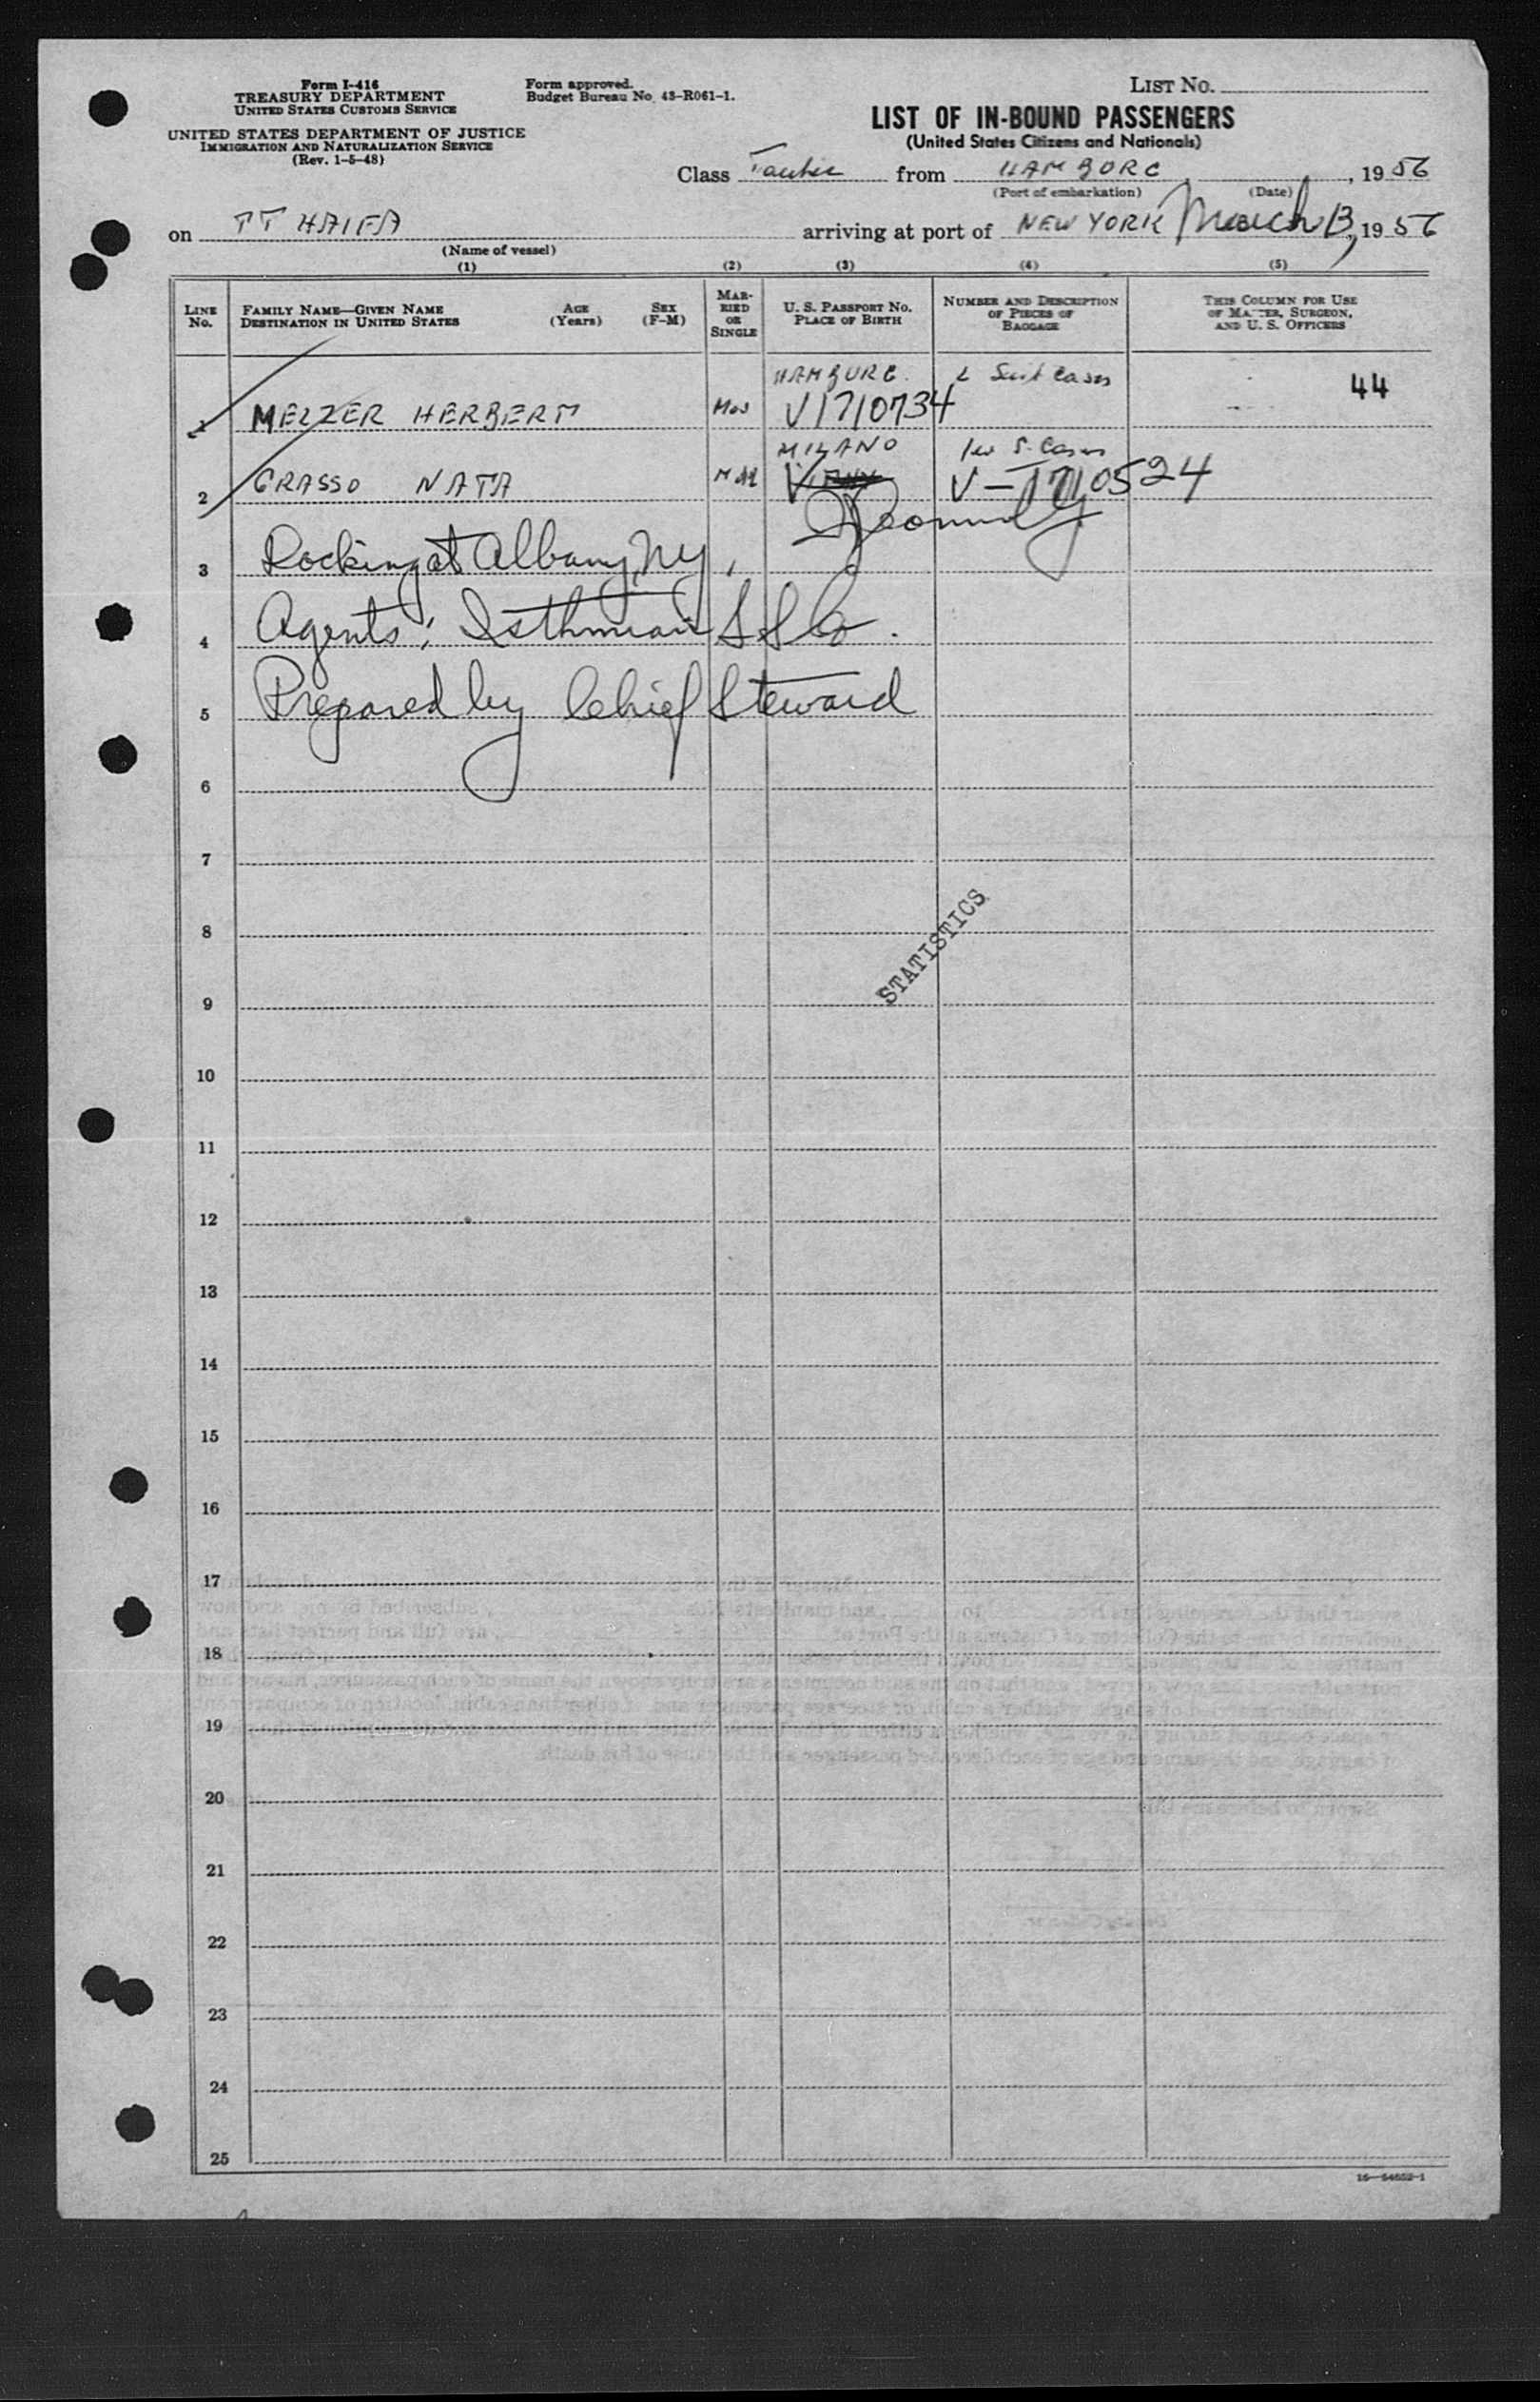 Form I-416
TREASURY DEPARTMENT
UNITED STATES CUSTOMS SERVICE
UNITED STATES DEPARTMENT OF JUSTICE
IMMIGRATION AND NATURALIZATION SERVICE
(Rev. 1-5-48)
Form approved.
Budget Bureau No. 43-R061-1.
LIST NO.
LIST OF IN-BOUND PASSENGERS
(United States Citizens and Nationals)
Class from HAMBURG , 1956
(Port of embarkation) (Date)
on HAIFA arriving at port of NEW YORK March 13, 1956
(Name of vessel)
(1) (2) (3) (4) (5)
LINE No. FAMILY NAME—GIVEN NAME DESTINATION IN UNITED STATES AGE (Years) SEX (F-M) MARRIED OR SINGLE U. S. PASSPORT NO. PLACE OF BIRTH NUMBER AND DESCRIPTION OF PIECES OF BAGGAGE THIS COLUMN FOR USE OF MASTER, SURGEON, AND U. S. OFFICERS
HAMBURG. 2 Suit Cases 44
1 MELZER HERBERT V1710734
MILANO S. Cases
2 GRASSO NATA V-1710524
3 Docking at Albany, NY.
4 Agents: Isthmian S S Co.
5 Prepared by Chief Steward
6
7
8
STATISTICS
9
10
11
12
13
14
15
16
17
18
19
20
21
22
23
24
25